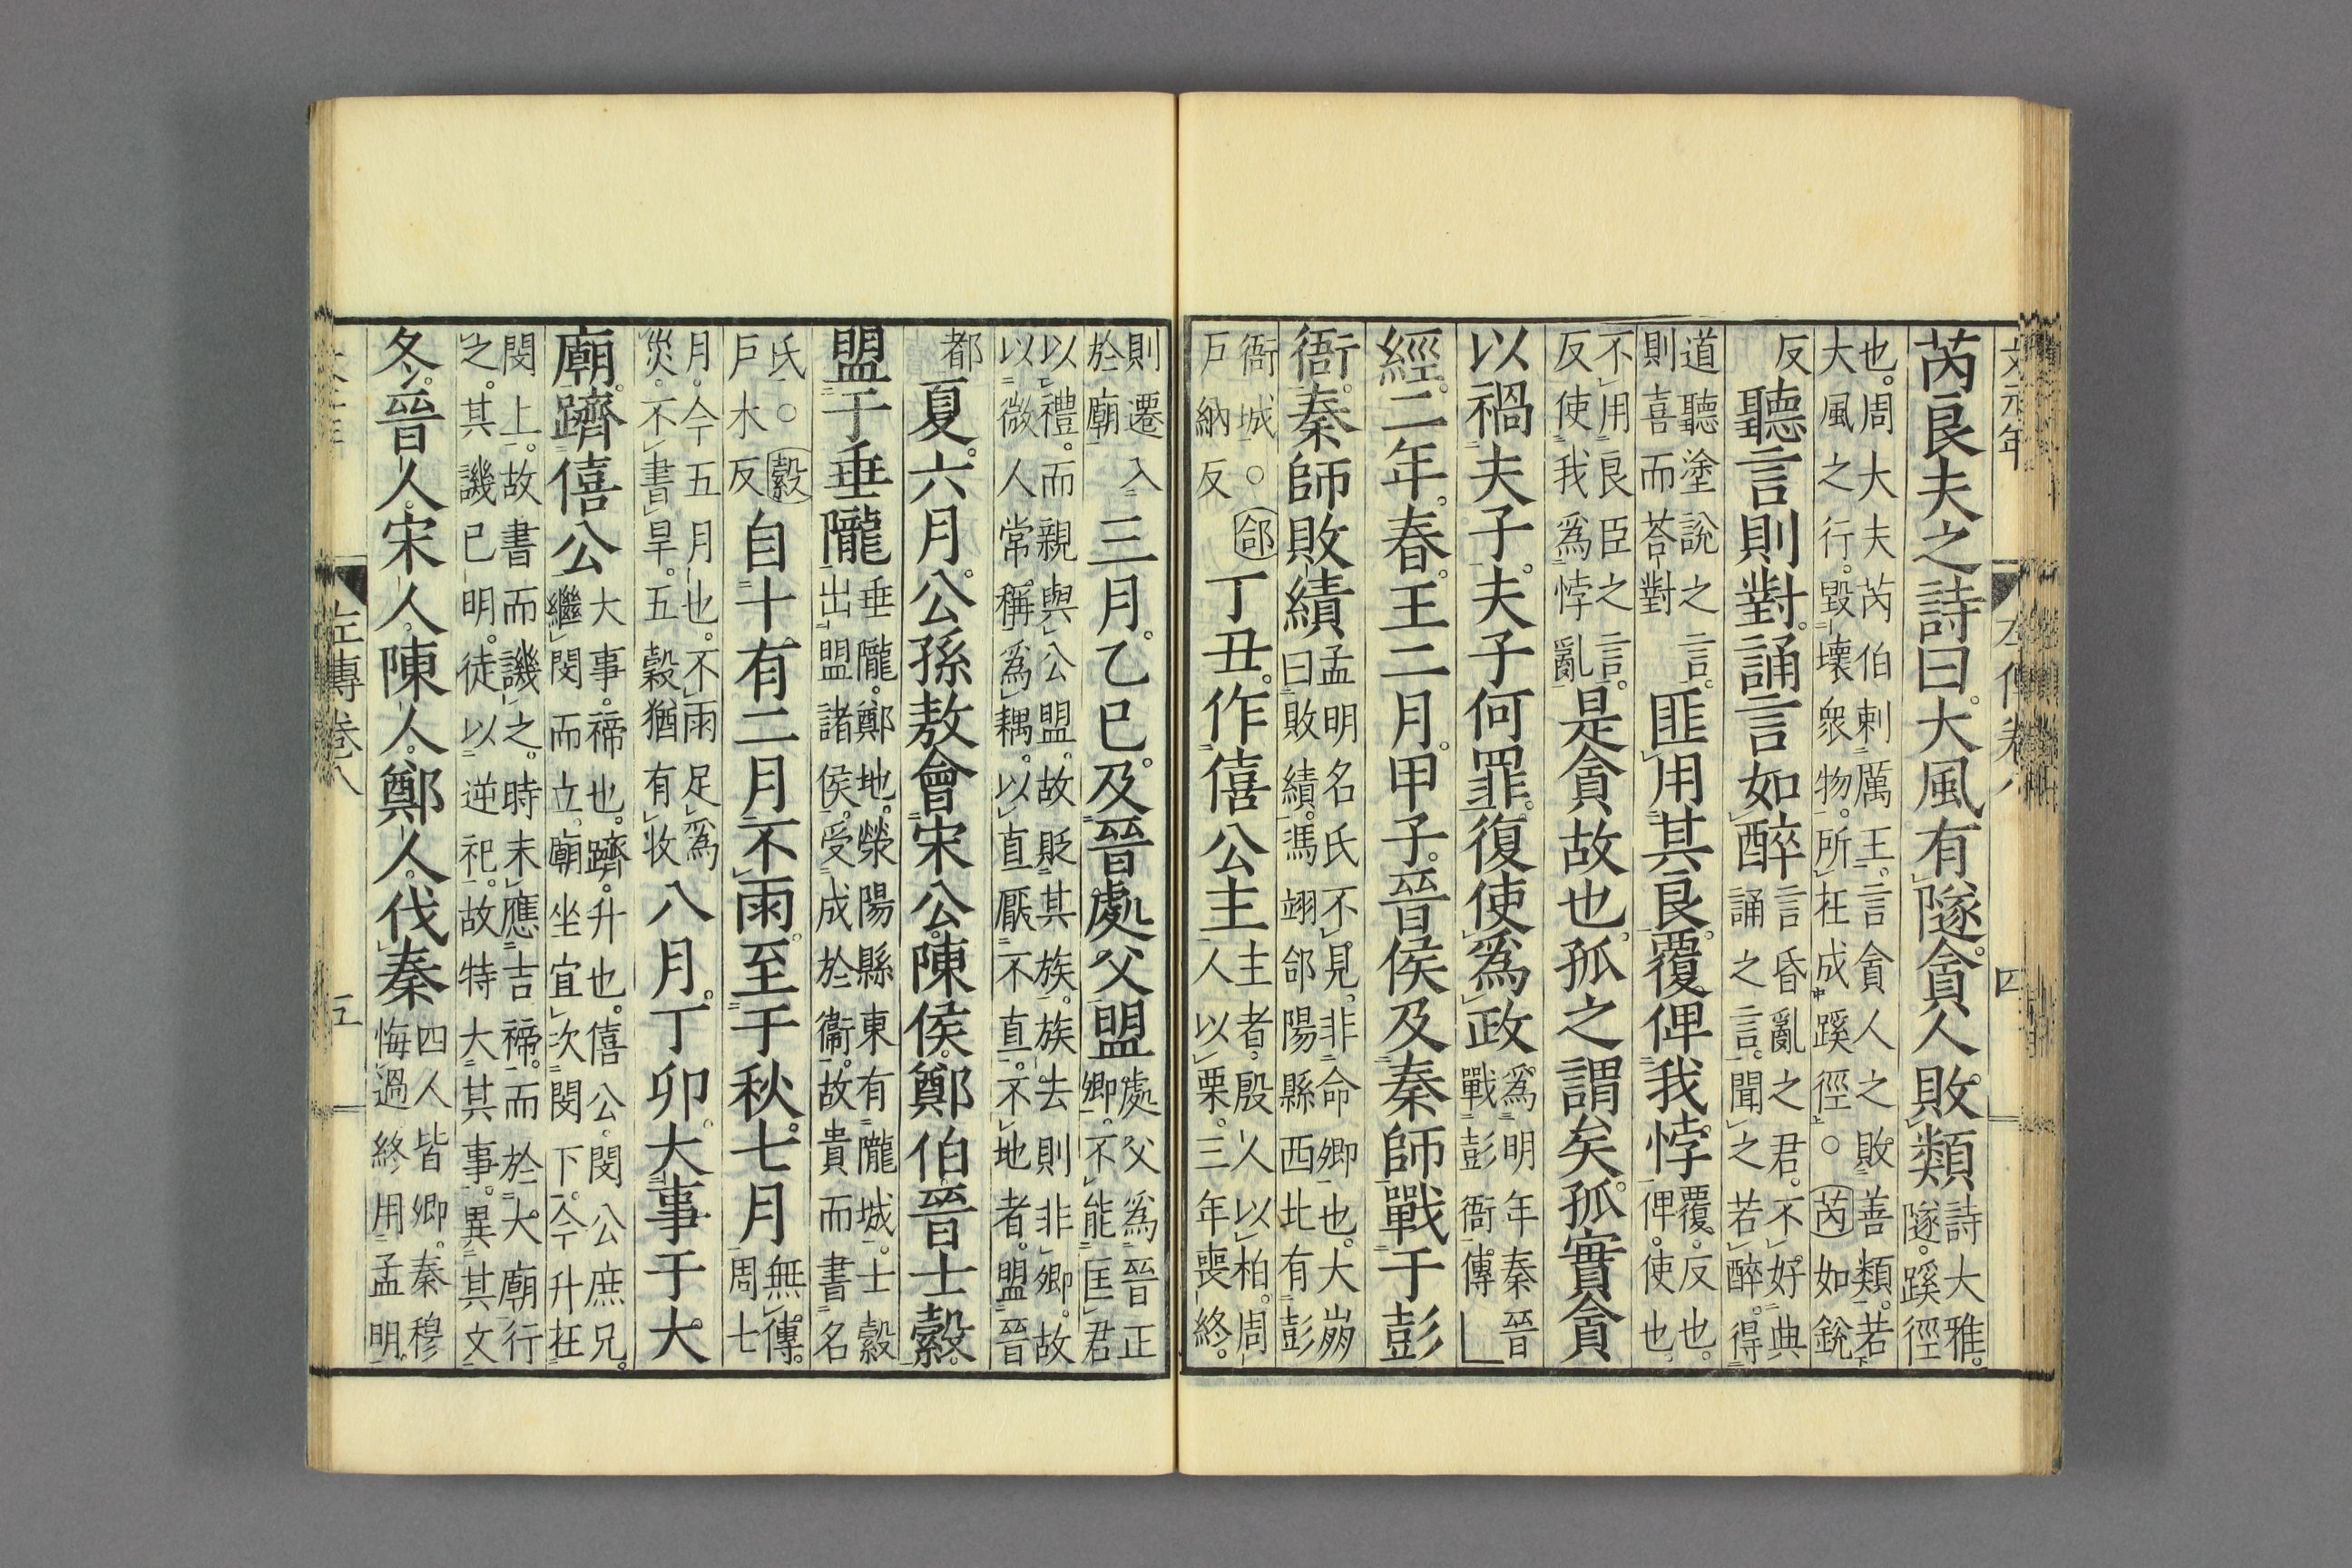 文元年 左傳卷八 四
芮良夫之詩曰。大風有隧。貪人敗類詩大雅。隧。蹊徑
也。周大夫芮伯刺厲王。言貪人之敗善類。若大風之行。毀壞衆物。所在成蹊徑。○芮如銳
反聽言則對。誦言如醉言昏亂之君。不好典誦之言。聞之若醉。得
道聽塗說之言。則喜而荅對匪用其良。覆俾我悖覆。反也。俾。使也
不用良臣之言。反使我爲悖亂是貪故也。孤之謂矣。孤實貪
以禍夫子。夫子何罪。復使爲政爲明年秦晉戰彭衙傳
經。二年。春。王二月。甲子。晉侯及秦師戰于彭
衙。秦師敗績孟明名氏不見。非命卿也。大崩曰敗績。馮翊郃陽縣西北有彭
衙城。○郃戸納反丁丑。作僖公主主者。殷人以柏。周人以栗。三年喪終。
則遷入於廟三月。乙巳。及晉處父盟處父爲晉正卿。不能匡君
以禮。而親與公盟。故貶其族。族去則非卿。故以微人常稱爲耦。以直厭不直。不地者。盟晉
都夏。六月。公孫敖會宋公。陳侯。鄭伯晉士縠。
盟于垂隴垂隴。鄭地。滎陽縣東有隴城。士縠出盟諸侯。受成於衞。故貴而書名
氏。○縠戸木反自十有二月不雨。至于秋。七月無傳。周七
月。今五月也。不雨足爲災。不書旱。五穀猶有收八月。丁卯。大事于大
廟。躋僖公大事。禘也。躋。升也。僖公。閔公庶兄。繼閔而立。廟坐宜次閔下。今升在
閔上。故書而譏之。時未應吉禘。而於大廟行之。其譏已明。徒以逆祀。故特大其事。異其文
冬。晉人。宋人。陳人。鄭人。伐秦四人皆卿。秦穆悔過終用孟明。
左傳卷八 五